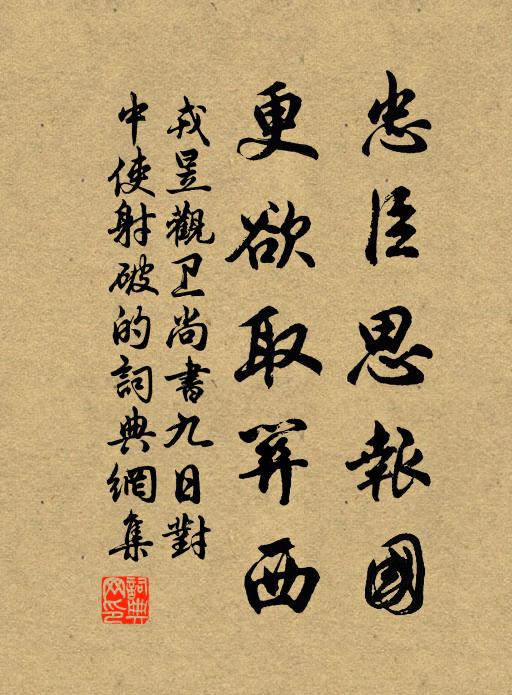 忠臣思報國
更欲取關西
戎昱觀卫尚書九日對
中使射破的詞典網集
詞典
网印